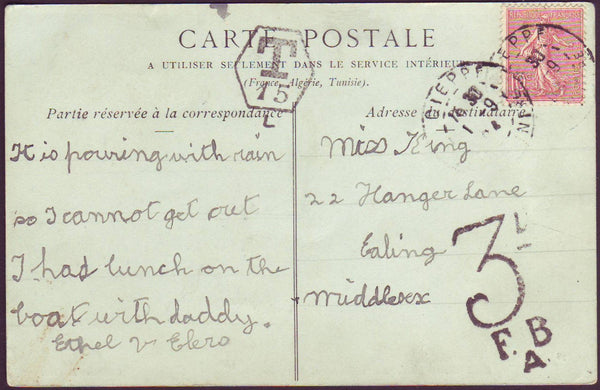 CARTE POSTALE
A UTILISER SEULEMENT DANS LE SERVICE INTÉRIEUR
(France, Algérie, Tunisie).
T
15
L
DIEPPE
Partie réservée à la correspondance
Adresse du destinataire
It is pouring with rain
so I cannot get out
I had lunch on the
boat with daddy.
Ethel
Miss King
22 Hanger Lane
Ealing
Middlesex
3
F.B
A.